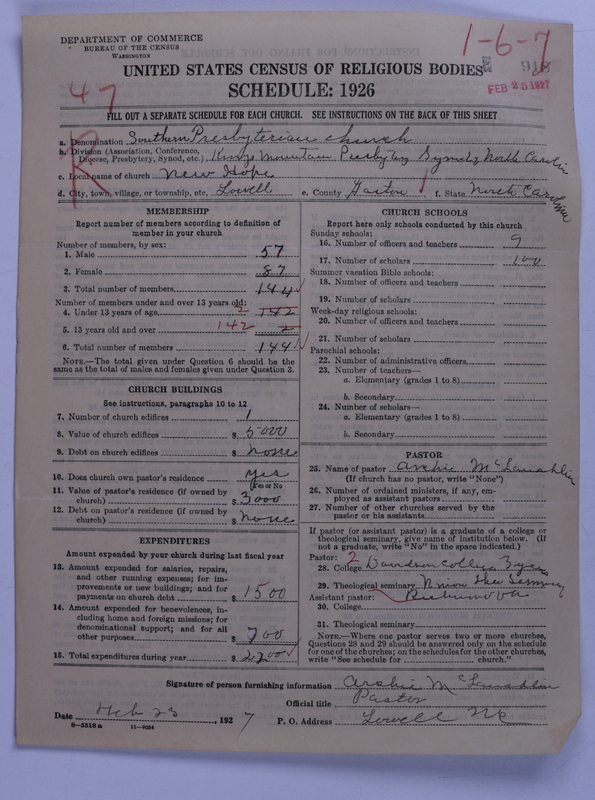 DEPARTMENT OF COMMERCE
BUREAU OF THE CENSUS
WASHINGTON
1-6-7
918
FEB 25 1927
UNITED STATES CENSUS OF RELIGIOUS BODIES
SCHEDULE: 1926
47
R
FILL OUT A SEPARATE SCHEDULE FOR EACH CHURCH. SEE INSTRUCTIONS ON THE BACK OF THIS SHEET
a. Denomination Southern Presbyterian church
b. Division (Association, Conference, Diocese, Presbytery, Synod, etc.) Kings Mountain Presbytery, Synod, North Carolin
c. Local name of church New Hope
d. City, town, village, or township, etc. Lowell e. County Gaston f. State North Carolina
MEMBERSHIP
Report number of members according to definition of member in your church
Number of members, by sex:
1. Male 57
2. Female 87
3. Total number of members 144
Number of members under and over 13 years old:
4. Under 13 years of age 2 142
5. 13 years old and over 142 2
6. Total number of members 144
NOTE.—The total given under Question 6 should be the same as the total of males and females given under Question 3.
CHURCH BUILDINGS
See instructions, paragraphs 10 to 12
7. Number of church edifices 1
8. Value of church edifices $ 5000
9. Debt on church edifices $ none
10. Does church own pastor's residence yes
(Yes or No
11. Value of pastor's residence (if owned by church) $ 3000
12. Debt on pastor's residence (if owned by church) $ none
EXPENDITURES
Amount expended by your church during last fiscal year
13. Amount expended for salaries, repairs, and other running expenses; for improvements or new buildings; and for payments on church debt $ 1500
14. Amount expended for benevolences, including home and foreign missions; for denominational support; and for all other purposes $ 700
15. Total expenditures during year $ 2200
CHURCH SCHOOLS
Report here only schools conducted by this church
Sunday schools:
16. Number of officers and teachers 9
17. Number of scholars 100
Summer vacation Bible schools:
18. Number of officers and teachers
19. Number of scholars
Week-day religious schools:
20. Number of officers and teachers
21. Number of scholars
Parochial schools:
22. Number of administrative officers
23. Number of teachers—
a. Elementary (grades 1 to 8)
b. Secondary
24. Number of scholars—
a. Elementary (grades 1 to 8)
b. Secondary
PASTOR
25. Name of pastor Archie McLauchlin
(If church has no pastor, write "None")
26. Number of ordained ministers, if any, employed as assistant pastors
27. Number of other churches served by the pastor or his assistants
If pastor (or assistant pastor) is a graduate of a college or theological seminary, give name of institution below. (If not a graduate, write "No" in the space indicated.)
Pastor: 2
28. College Davidson College
29. Theological seminary Union Theo Seminary
Assistant pastor: Richmond Va
30. College
31. Theological seminary
NOTE.—Where one pastor serves two or more churches, Questions 28 and 29 should be answered only on the schedule for one of the churches; on the schedules for the other churches, write "See schedule for church."
Signature of person furnishing information Archie McLauchlin
Official title Pastor
Date Feb 23, 1927 P. O. Address Lowell NC
8-5518a 11-9024